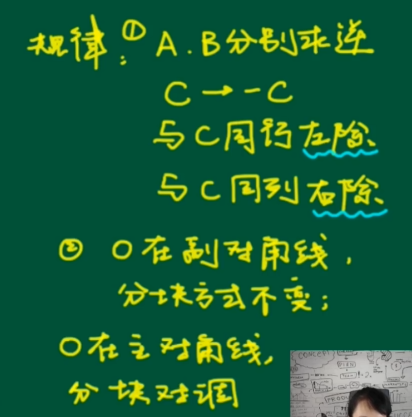 规律：① A.B分别求逆
C→-C
与C同行左除
与C同列右除
② O在副对角线，
分块方式不变；
O在主对角线，
分块对调